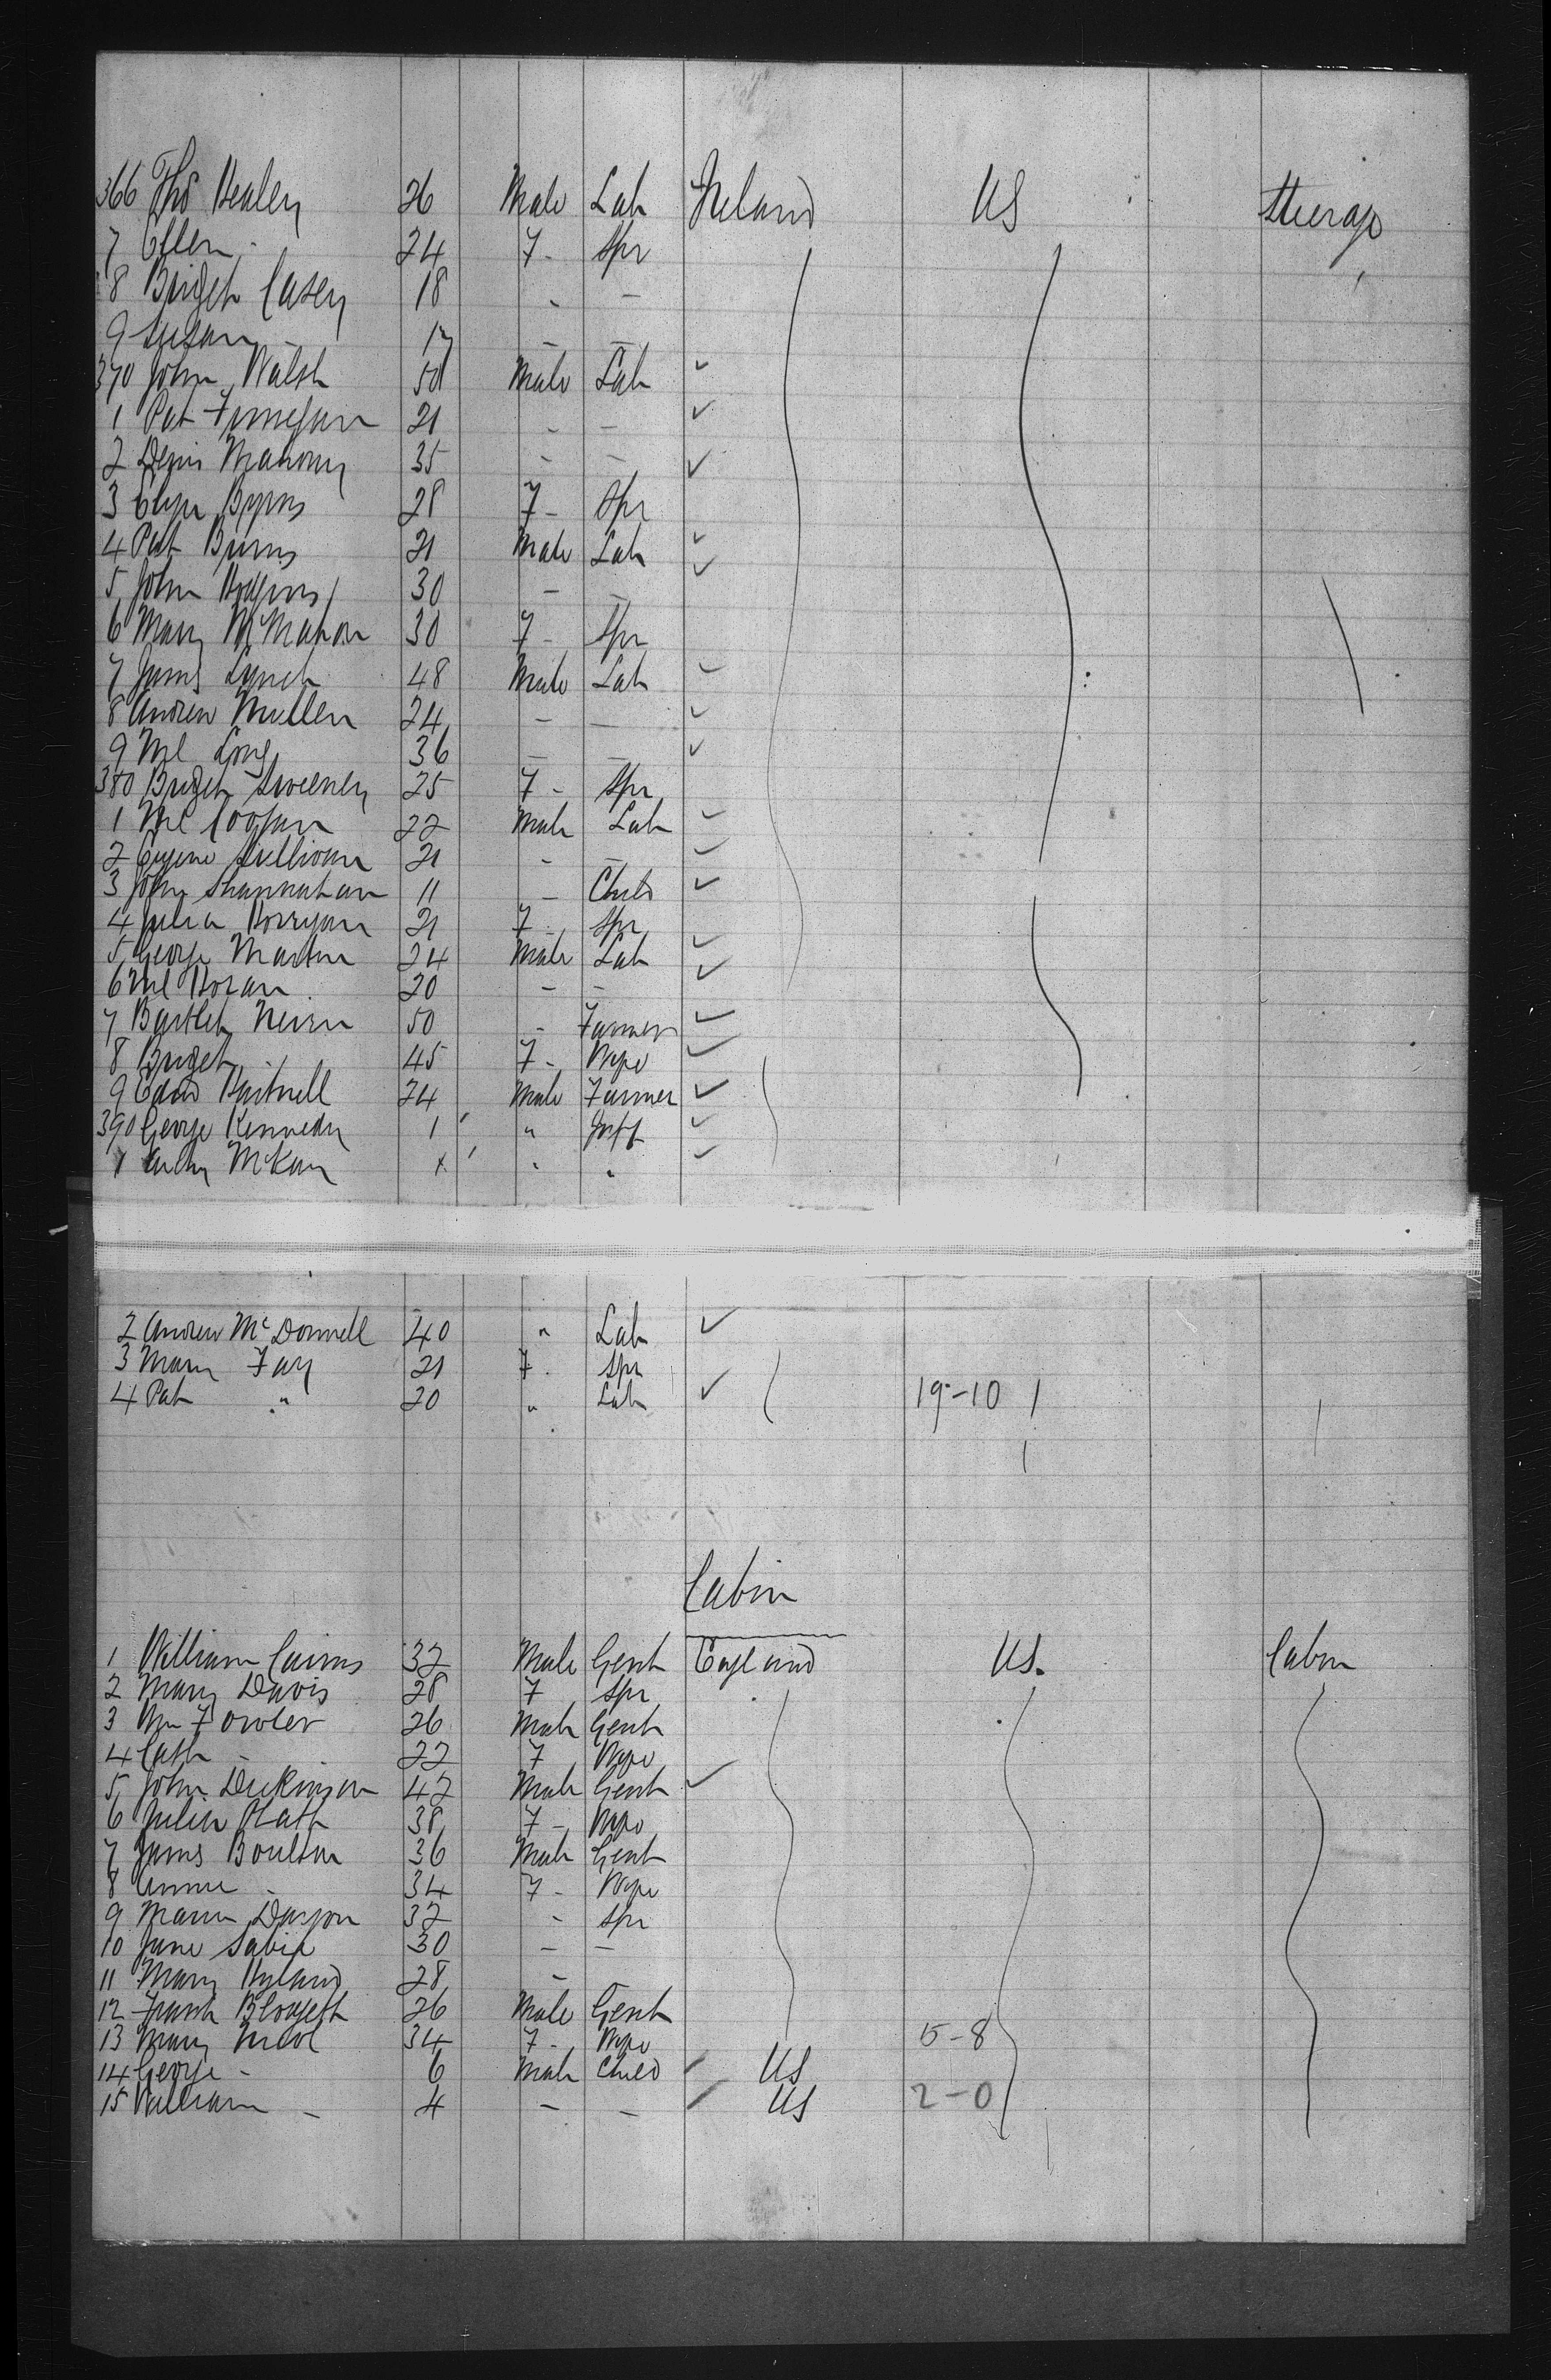 366 Thos Healey 26 Male Lab Ireland US Steerage
7 Ellen - 24 F - Spr
8 Bridget Casey 18 - -
9 Susan - 17 - -
370 John Walsh 50 Male Lab ✓
1 Pat Finnegan 21 - - ✓
2 Denis Mahony 35 - - ✓
3 Byrns 28 F - Spr
4 Pat Burns 21 Male Lab ✓
5 John Hodgins 30 - - ✓
6 Mary McMahon 30 F - Spr
7 James Lynch 48 Male Lab ✓
8 Andrew Mullen 24 - - ✓
9 Ml Long 36 - - ✓
380 Bridget Sweeney 25 F - Spr
1 Ml Coogan 22 Male Lab ✓
2 Eugene Sullivan 21 - - ✓
3 John Shannahan 11 - Child ✓
4 Julia Horrigan 21 F - Spr
5 George Martin 24 Male Lab ✓
6 Ml Horan 20 - - ✓
7 Bartlet 50 - Farmer ✓
8 Bridget - 45 F - Wife ✓
9 Edwd Hartnell 24 Male Farmer ✓
390 George Kennedy 1 " Inft ✓
1 McKay " " ✓
2 Andrew McDonnell 40 " Lab ✓
3 Mary Fay 21 F - Spr
4 Pat " 20 " Lab ✓ 19-10
Cabin
1 William Cairns 32 Male Gent England US. Cabin
2 Mary Davis 28 F Spr
3 Wm Fowler 26 Male Gent
4 Cath - 22 F Wife
5 John Dickinson 42 Male Gent ✓
6 Julia 38 F - Wife
7 James Boulton 36 Male Gent
8 Annie - 34 F - Wife
9 32 - Spr
10 Jane 30 - -
11 Mary Hyland 28 - -
12 Frank Blodgett 26 Male Gent
13 Mary Nicol 34 F - Wife 15-8
14 George - 6 Male Child US
15 William - 4 - - US 2-0